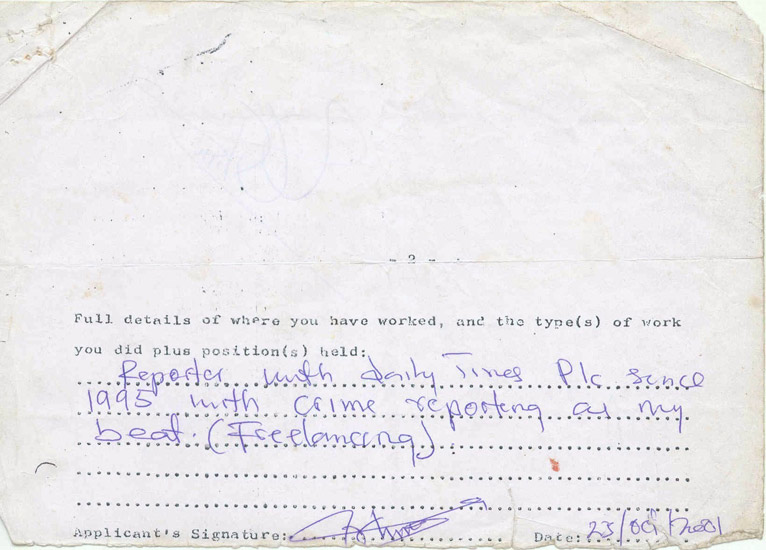 - 2 -
Full details of where you have worked, and the type(s) of work
you did plus position(s) held:
Reporter with daily Times Plc since
1995 with crime reporting as my
beat. (Freelancing)
Applicant's Signature:
Date: